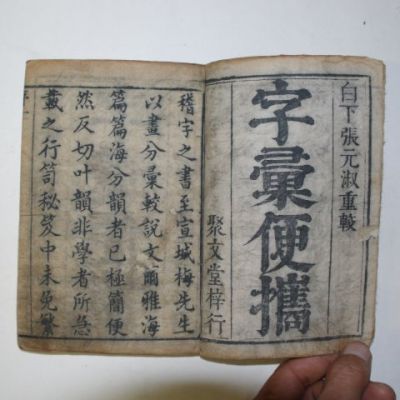 白下張元淑重較
字彙便攜
聚文堂梓行
稽字之書至宣城梅先生
以畫分彙較說文爾雅海
篇篇海分韻者已極簡便
然反切叶韻非學者所急
載之行笥秘笈中未免繁